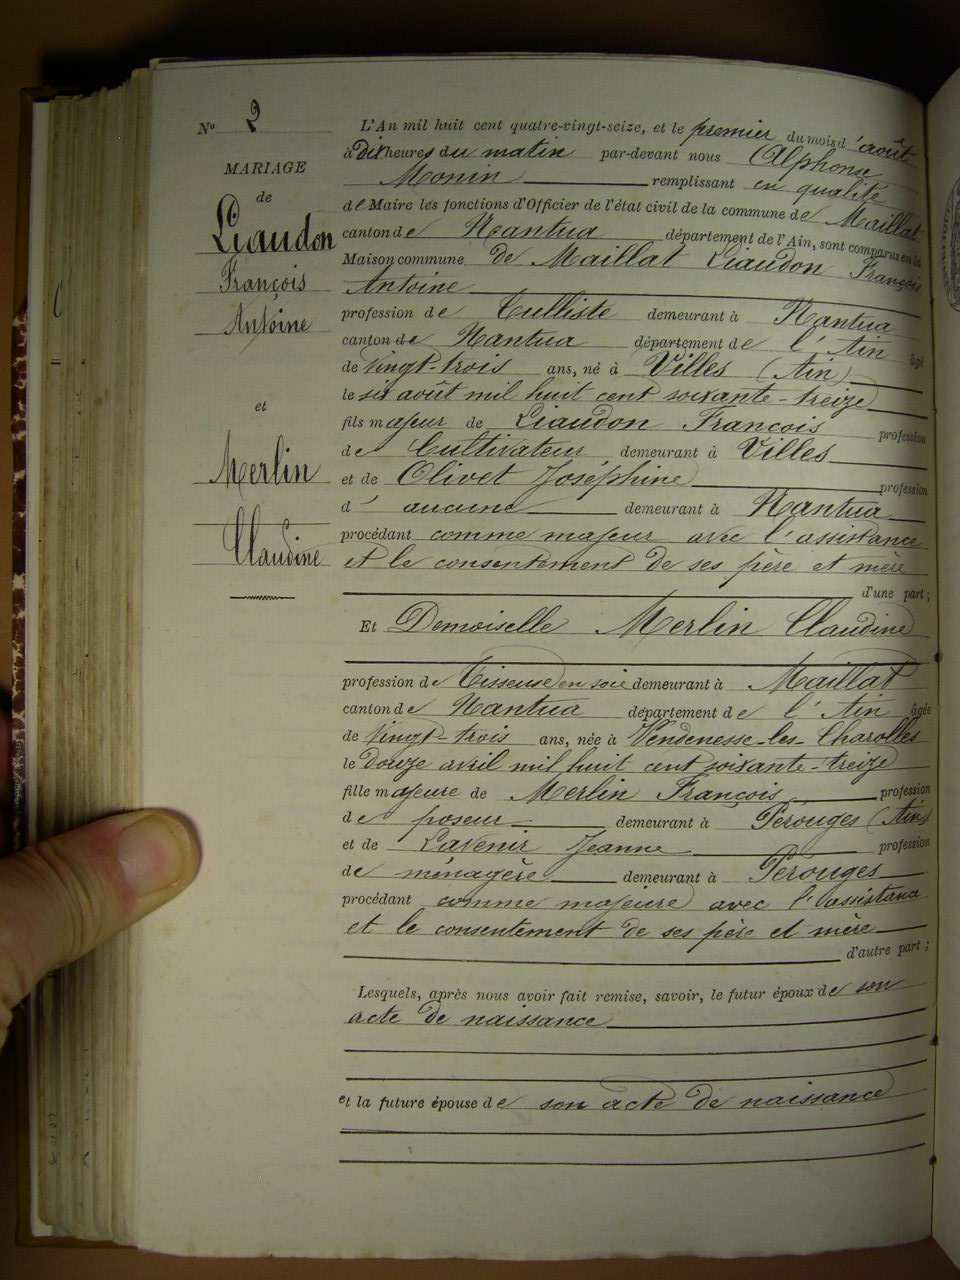 No 2
MARIAGE
de
Liaudon
François
Antoine
et
Merlin
Claudine
L'An mil huit cent quatre-vingt-seize, et le premier du mois d'août
à dix heures du matin par-devant nous Alphonse
Monin remplissant en qualité
de Maire les fonctions d'Officier de l'état civil de la commune de Maillat
canton de Nantua département de l'Ain, sont comparus en la
Maison commune de Maillat Liaudon François
Antoine
profession de Tulliste demeurant à Nantua
canton de Nantua département de l'Ain âgé
de vingt-trois ans, né à Villes (Ain)
le six août mil huit cent soixante-treize
fils majeur de Liaudon François profession
de Cultivateur demeurant à Villes
et de Olivet Joséphine profession
d'aucune demeurant à Nantua
procédant comme majeur avec l'assistance
et le consentement de ses père et mère
d'une part ;
Et Demoiselle Merlin Claudine
profession de Tisseuse en soie demeurant à Maillat
canton de Nantua département de l'Ain âgée
de vingt-trois ans, née à Vendenesse-les-Charolles
le douze avril mil huit cent soixante-treize
fille majeure de Merlin François profession
de poseur demeurant à Pérouges (Ain)
et de Lavenir Jeanne profession
de ménagère demeurant à Pérouges
procédant comme majeure avec l'assistance
et le consentement de ses père et mère
d'autre part ;
Lesquels, après nous avoir fait remise, savoir, le futur époux de son
acte de naissance
et la future épouse de son acte de naissance